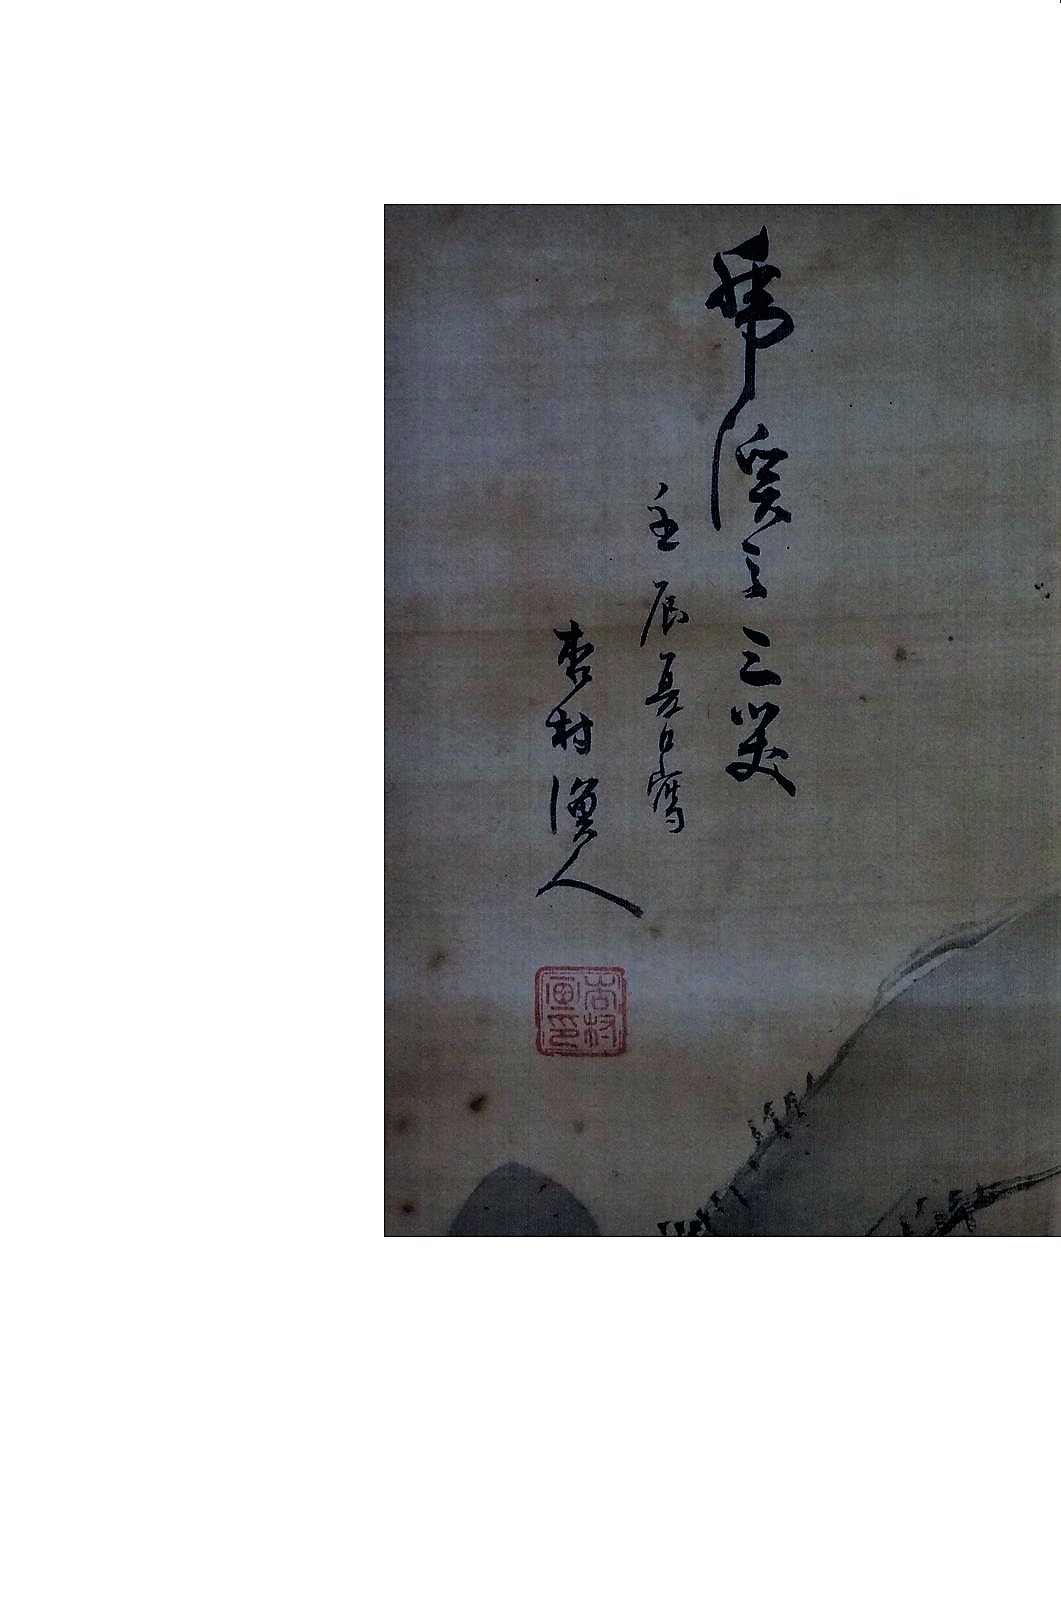 虎溪之三笑
壬辰夏日寫
杏村漁人
杏村
画印